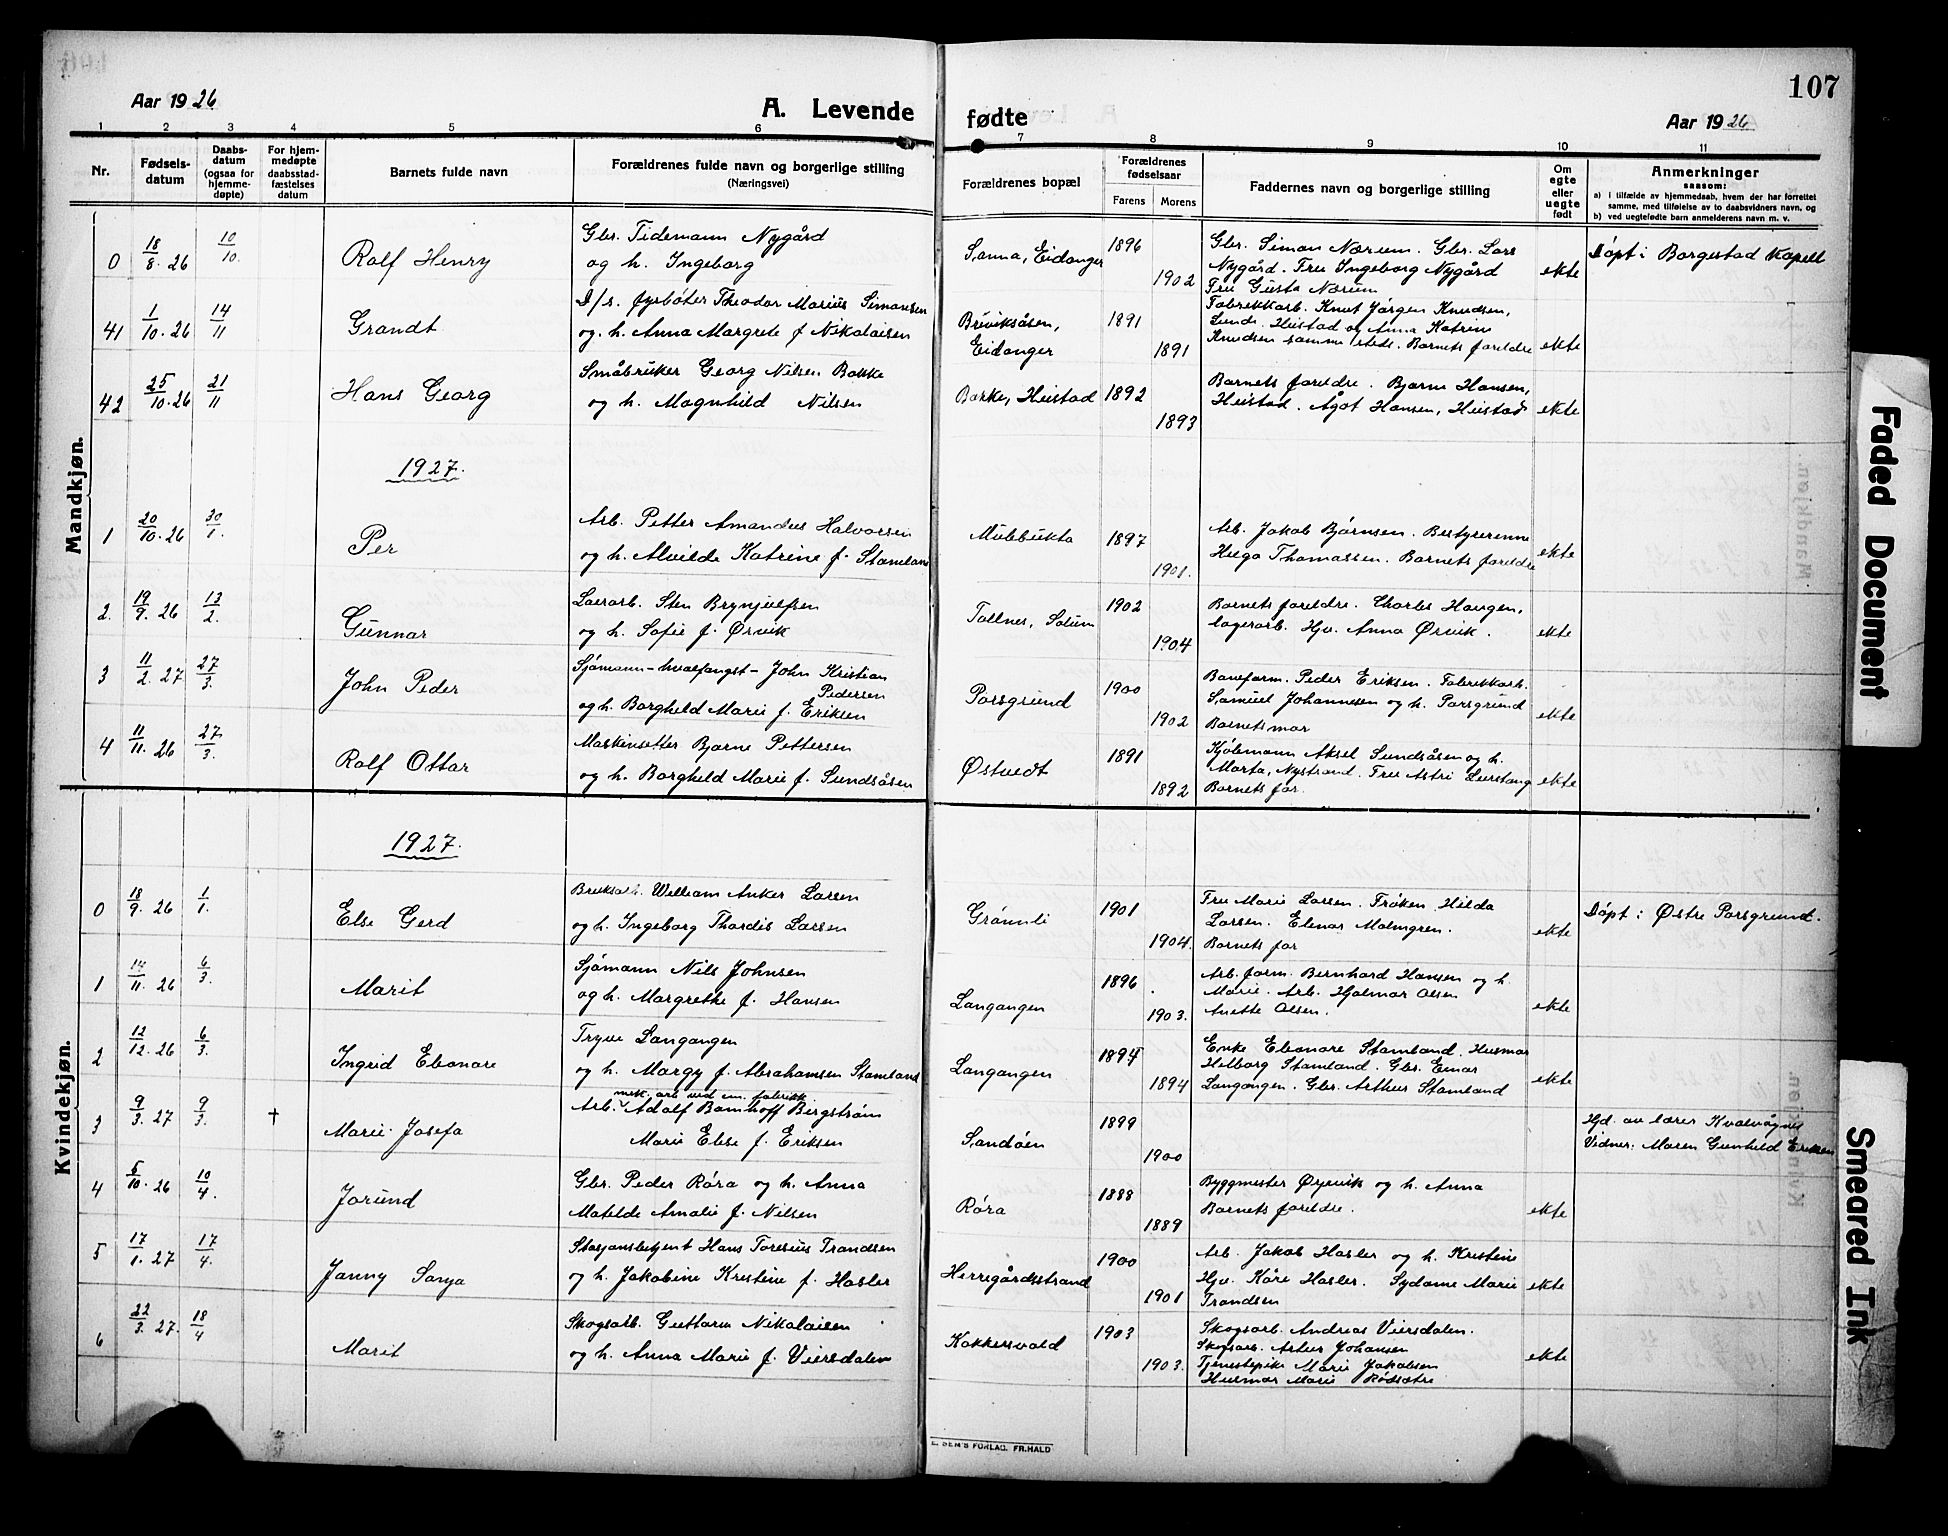 107
Aar 1926
A. Levende
fødte
Aar 1926
1 2 3 4 5 6 7 8 9 10 11
Nr.
Fødsels-
datum
Daabs-
datum
(ogsaa for
hjemme-
døpte)
For hjem-
medøpte
daabsstad-
fæstelses
datum
Barnets fulde navn
Forældrenes fulde navn og borgerlige stilling
(Næringsvei)
Forældrenes bopæl
Forældrenes
fødselsaar
Farens Morens
Faddernes navn og borgerlige stilling
Om
egte
eller
uegte
født
Anmerkninger
saasom:
a) i tilfælde av hjemmedaab, hvem der har forrettet
samme, med tilføielse av to daabsvidners navn, og
b) ved uegtefødte barn anmelderens navn m. v.
Mandkjøn.
0 18/8. 26 10/10. Rolf Henry
Gbr. Tidemann Nygård
og h. Ingeborg
Sanna, Eidanger 1896 1902
Gbr. Simon Nærum. Gbr. Lars
Nygård. Fru Ingeborg Nygård
Fru Gusta Nærum
ekte
Døpt i Borgestad Kapell
41 1/10. 26 14/11 Grandt
D/s. fyrbøter Theodor Marius Simonsen
og h. Anna Margrete f. Nikolaisen
Breviksåsen,
Eidanger
1891 1891
Fabrikkarb. Knut Jørgen Knudsen,
Lunde. Heistad og Anna Katrine
Knudsen samme steds. Barnets foreldre
ekte
42 25/10. 26 21/11 Hans Georg
Småbruker Georg Nilsen Bakke
og h. Magnhild Nilsen
Bakke, Heistad 1892 1893
Barnets foreldre. Bjarne Hansen,
Heistad. Ågot Hansen, Heistad
ekte
1927.
1 20/10. 26 30/1. Per
Arb. Petter Amandus Halvorsen
og h. Alvilde Katrine f. Stamland
Mulebukta 1897 1901.
Arb. Jakob Bjørnsen. Bestyrerinne
Helga Thomassen. Barnets foreldre
ekte
2. 19/9. 26 13/2. Gunnar
Laerarb. Sten Brynjulfsen
og h. Sofie f. Ørvik
Tollnes, Solum 1902 1904
Barnets foreldre. Charles Haugen,
lagerarb. Hjv. Anna Ørvik.
ekte
3 11/2. 27 27/3. John Peder
Sjømann - hvalfangst - John Kristian
Pedersen
og h. Borghild Marie f. Eriksen
Porsgrund 1900 1902
Baneform. Peder Eriksen. Fabrikkarb.
Samuel Johannesen og h. Porsgrund
Barnets mor
ekte
4 11/11. 26 27/3. Rolf Ottar
Maskinsetter Bjarne Pettersen
og h. Borghild Marie f. Sundsåsen
Østvedt 1891 1892
Kjølemann Aksel Sundsåsen og h.
Marta, Nystrand. Fru Astri Leirstang
Barnets far.
ekte
Kvindekjøn.
1927.
0 18/9. 26 1/1. Else Gerd
Bruksarb. William Anker Larsen
og h. Ingeborg Thordis Larsen
Grømli 1901 1904.
Fru Marie Larsen. Frøken Hilda
Larsen. Elenar Malmgren.
Barnets far
ekte
Døpt i Østre Porsgrund.
1 14/11. 26 6/3. Marit
Sjømann Nils Johnsen
og h. Margrethe f. Hansen
Langangen 1896 1903.
Arb.form. Bernhard Hansen og h.
Marie. Arb. Hjalmar Olsen
Anette Olsen.
ekte
2 12/12. 26 6/3. Ingrid Eleonore
Tryve Langangen
og h. Margy f. Abrahamsen Stamland
Langangen 1894 1894
Enke Eleonore Stamland. Husmor
Helborg Stamland. Gbr. Einar
Langangen. Gbr. Arthur Stamland
ekte
3 9/3. 27 9/3. † Marie Josefa
mek. arb ved em. fabrikk
Arb. Adolf Bomhoff Bergstrøm
Marie Elise f. Eriksen
Sandøen 1899 1900
Hjd. av lærer Kvalvågnes
Vidner: Maren Gunhild Eriksen
4 5/10. 26 10/4. Jorund
Gbr. Peder Røra og h. Anna
Matilde Amalie f. Nilsen
Røra 1888 1889
Byggmester Øyrvik og h. Anna
Barnets foreldre.
ekte
5 17/1. 27 17/4. Janny Sonja
Stasjonsbetjent Hans Toresius Trondsen
og h. Jakobine Kristine f. Hasler
Herregårdsstrand 1900 1901
Arb. Jakob Hasler og h. Kristine
Hjv. Kåre Hasler. Sydame Marie
Trondsen
ekte
6 22/3. 27. 18/4 Marit
Skogsarb. Guttorm Nikolaisen
og h. Anna Marie f. Viersdalen
Kokkersvold 1903 1903.
Skogsarb. Andreas Viersdalen.
Skogsarb. Artur Johansen
Tjenestepike Marie Jakobsen
Husmor Marie Rødsætre
ekte
E. SEM'S FORLAG. FR.HALD
Faded Document
Smeared Ink